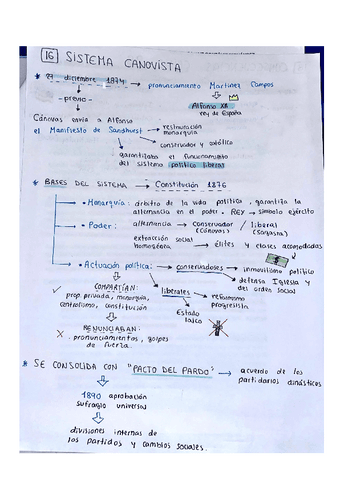 16 SISTEMA CANOVISTA
* 29 diciembre 1874 → pronunciamiento Martínez Campos
- previo -
Alfonso XII
rey de España
Cánovas envía a Alfonso
el Manifiesto de Sandhurst → restauración
monarquía
conservador y católico
garantizaba el funcionamiento
del sistema político liberal
* BASES DEL SISTEMA → Constitución 1876
• Monarquía: árbitro de la vida política, garantiza la
alternancia en el poder. REY → símbolo ejército
• Poder: alternancia → conservador / liberal
(Cánovas) (Sagasta)
extracción social
homogénea → élites y clases acomodadas
• Actuación política: → conservadores → inmovilismo político
defensa Iglesia y
del orden social
✓ COMPARTÍAN:
prop. privada, monarquía,
centralismo, constitución
liberales → reformismo
progresista
Estado
laico
X RENUNCIABAN:
pronunciamientos, golpes
de fuerza.
* SE CONSOLIDA CON "PACTO DEL PARDO" → acuerdo de los
partidarios dinásticos
1890 aprobación
sufragio universal
divisiones internas de
los partidos y cambios sociales.